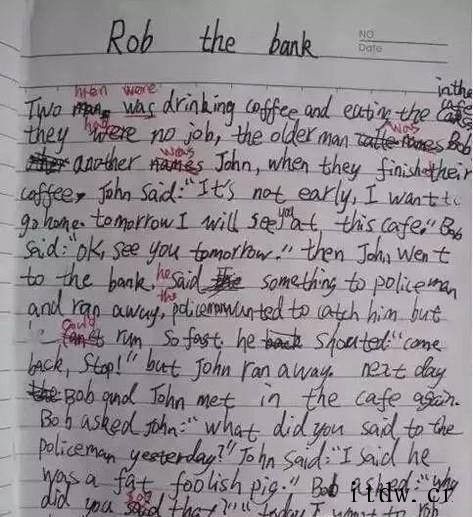 NO.
Date
Rob the bank
men were in the
Two man was drinking coffee and eating the cafe
they were no job, the older man was names Bob
another names was John, when they finished their
coffee, John said: "It's not early, I want to
go home. tomorrow I will see you at this cafe." Bob
said: "OK, see you tomorrow." then John went
to the bank. he said something to policeman
and ran away, the policeman wanted to catch him but
could run so fast, he back shouted: "come
back, stop!" but John ran away next day
the Bob and John met in the cafe again.
Bob asked John: "what did you said to the
policeman yesterday?" John said: "I said he
was a fat foolish pig." Bob asked: "why
did you say that?" "today I want to rob
itdw.cr